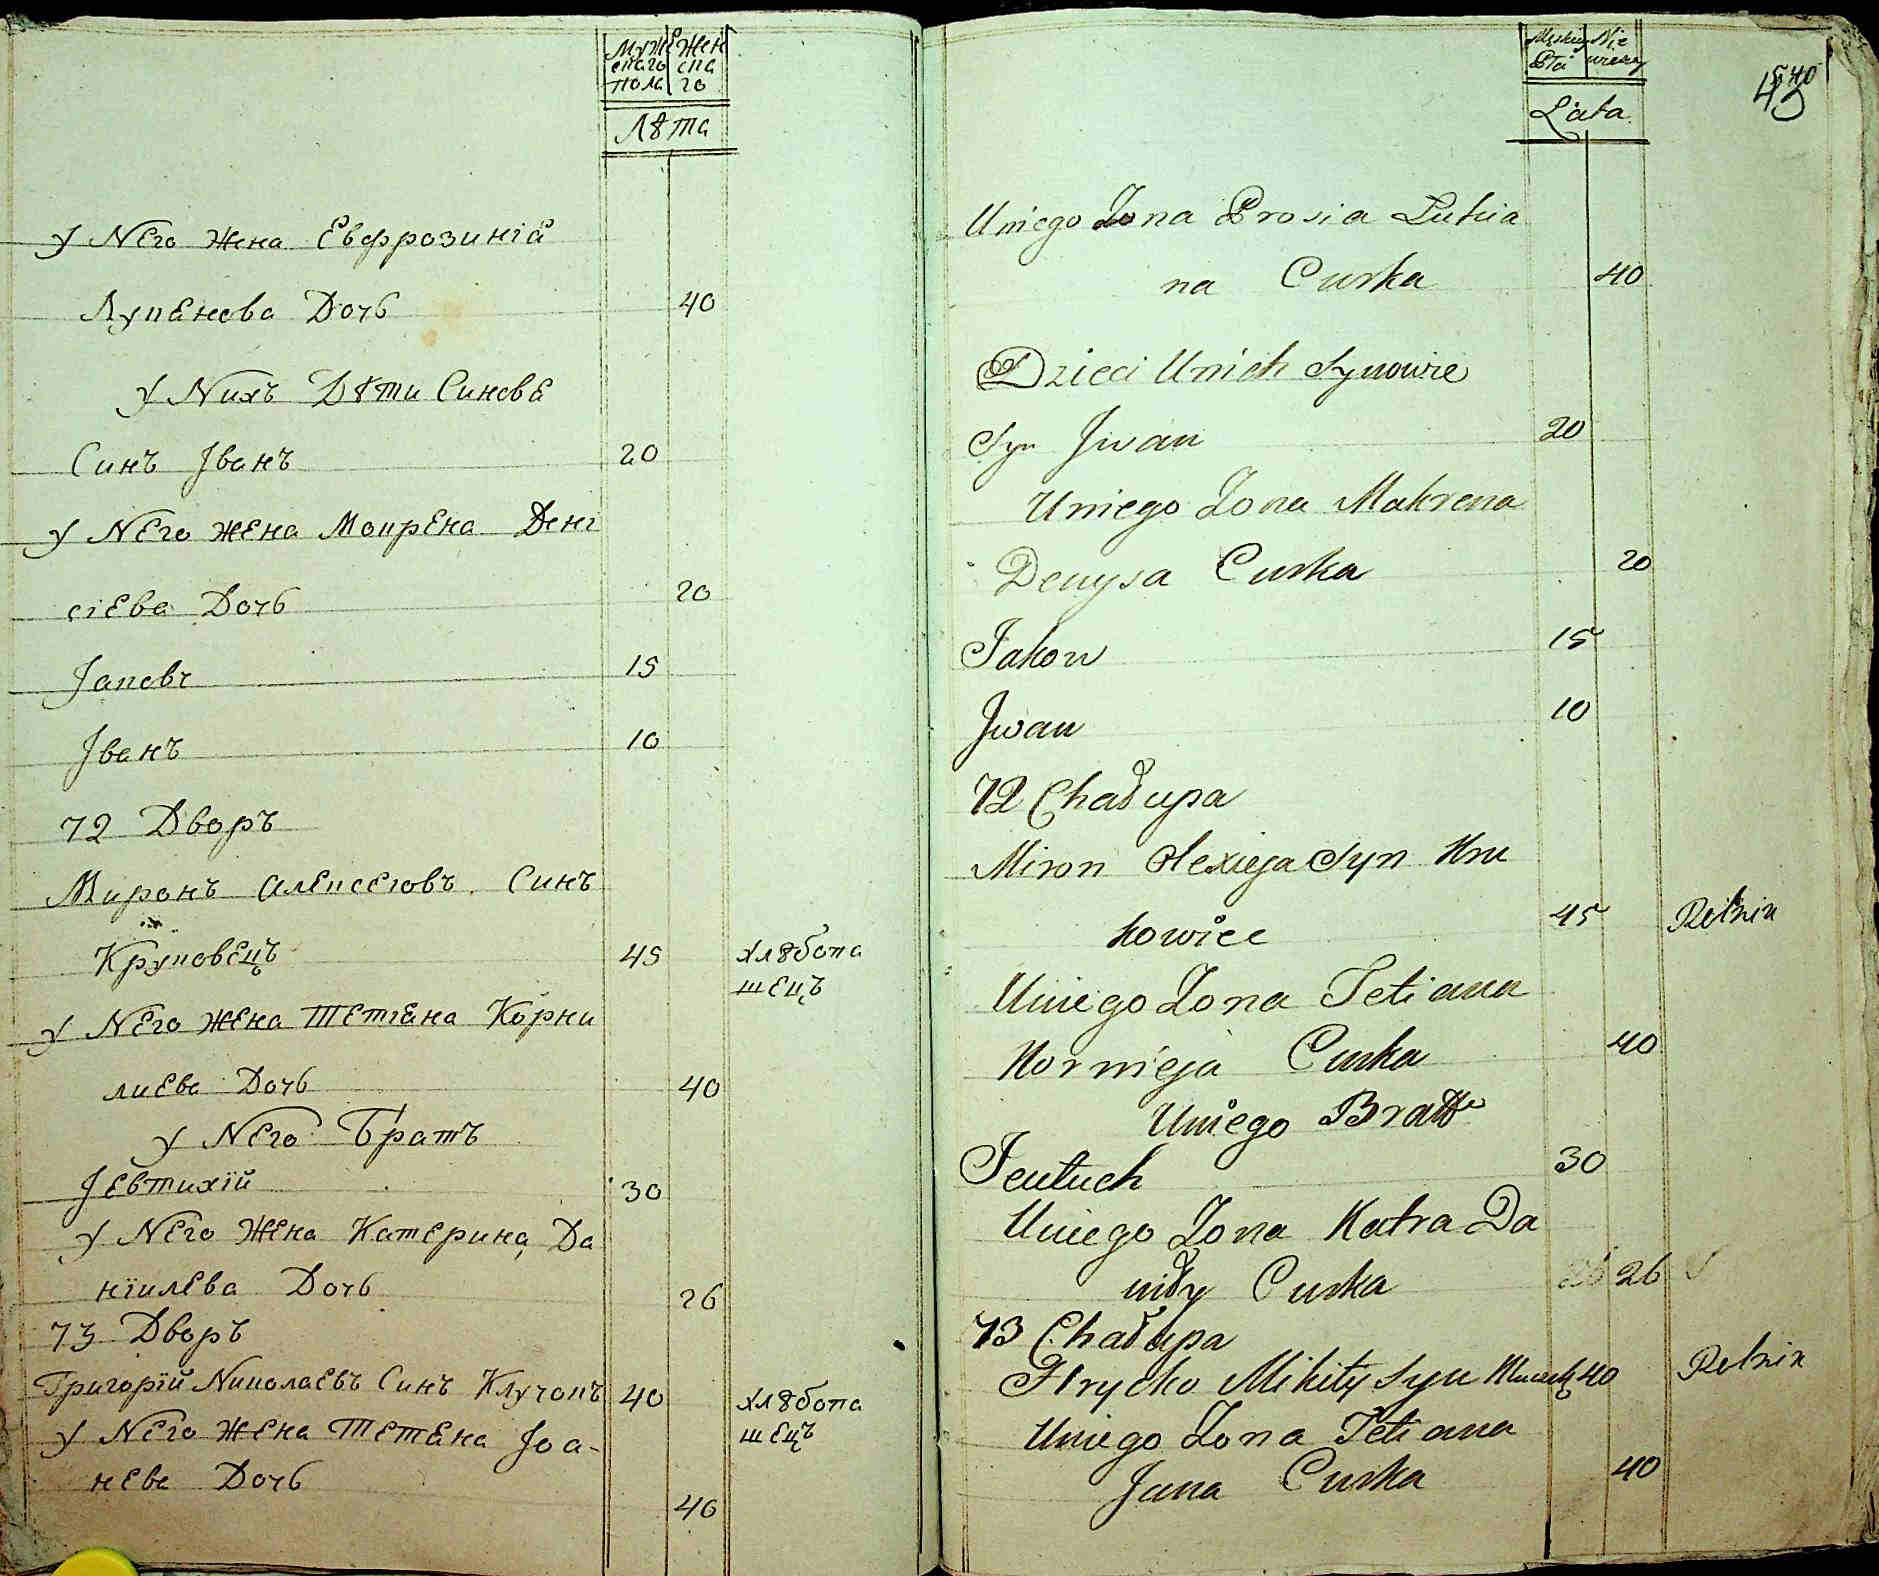 Муже Жен
скаго ска
пола го
Лѣта
У Него жена Евфрозиніа
Лукєнова Дочь
40
У Нихъ Дѣти Синове
Синъ Іванъ 20
У Него жена Мокрена Дені
сіева Дочь 20
Іаковъ 15
Іванъ 10
72 Дворъ
Миронъ Алексеговъ Синъ
Круковецъ 45 хлѣбопа
шецъ
У Него жена Тетіена Корни
лиева Дочь 40
У Него Братъ
Іевтихїй 30
У Него Жена Катерина Да
нїилева Дочь 26
73 Дворъ
Григорїй Николаевъ Синъ Клучокъ 40 хлѣбопа
У Него Жена Тетєна Іоа- шецъ
нева Дочь
40
Męskiey Nie
Płci wieściey
Lata
540
Uniego Zona Prosia Lukia
na Curka 40
Dzieci Unich Synowie
Syn Jwan 20
Uniego Zona Makrena
Denysa Curka 20
Jakow 15
Jwan 10
72 Chałupa
Miron Olexieja Syn Kru
kowiec 45 Rolnik
Uniego Zona Tetiana
Kornieja Curka 40
Uniego Bratt
Jeutuch 30
Uniego Zona Katra Da
niły Curka 26
73 Chałupa
Hrycko Mikity Syn 40 Rolnik
Uniego Zona Tetiana
Jana Curka 40